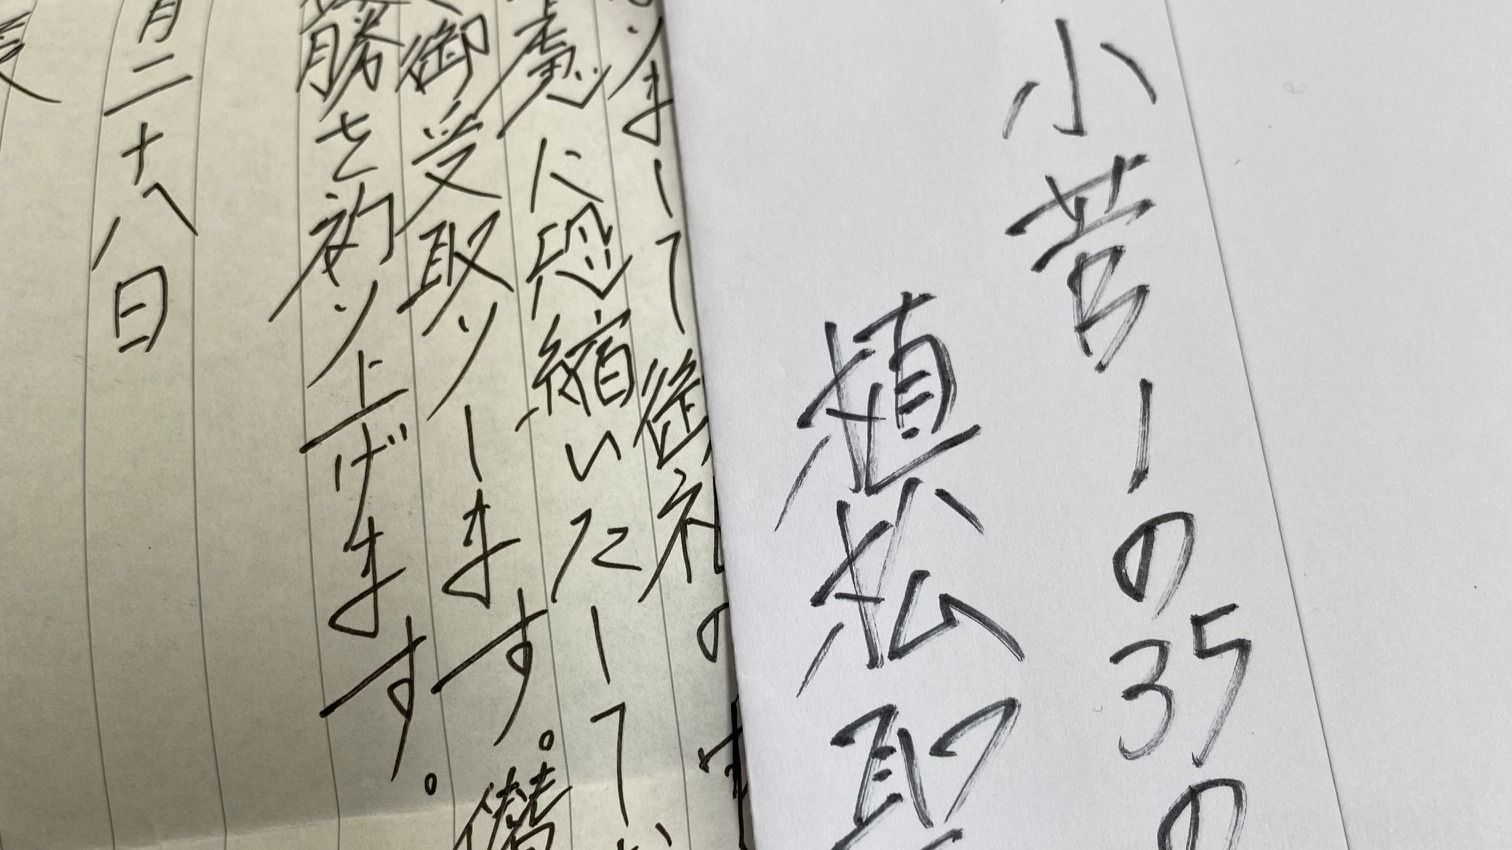 小菅1の35の
植松聖
まして御社の
慮に恐縮いたして
御受取りします。
勝を祈り上げます。
月二十八日